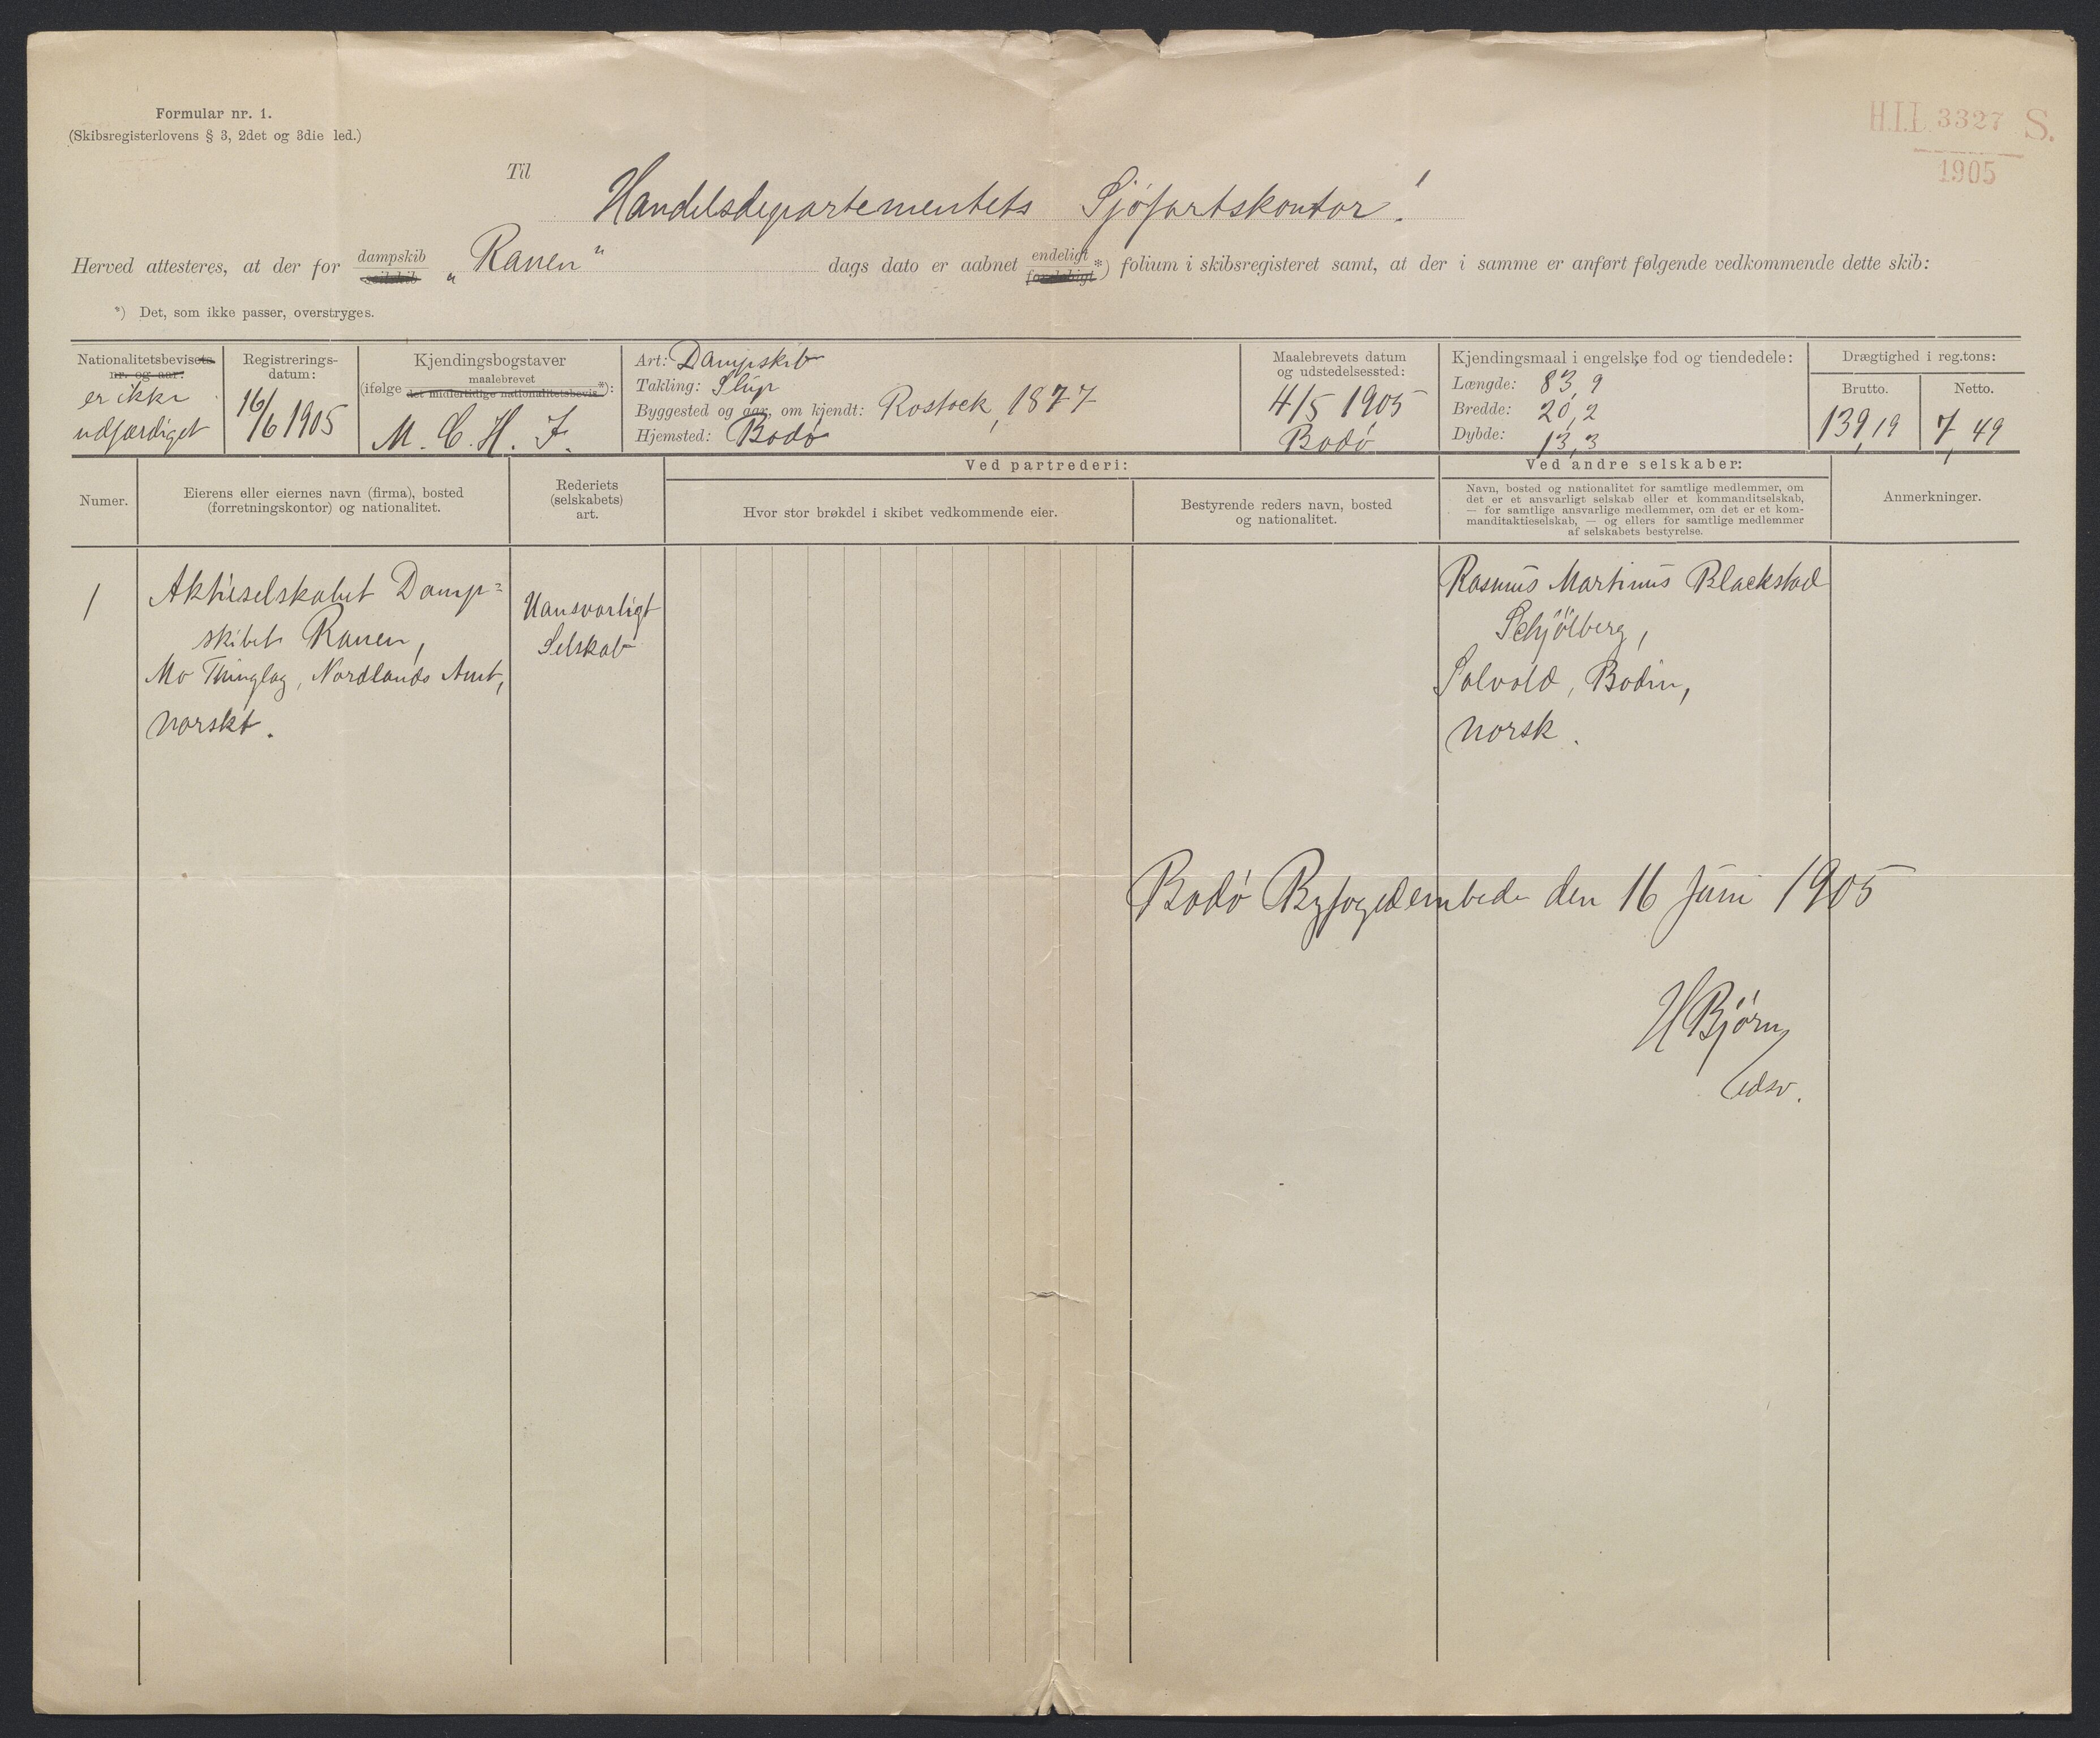 Formular nr. 1.
(Skibsregisterlovens § 3, 2det og 3die led.)
H.I.L 3327 S.
1905
Til
Handelsdepartementets Sjøfartskontor!
Herved attesteres, at der for dampskib seilskib „Ranen“ dags dato er aabnet endeligt foreløbigt *) folium i skibsregisteret samt, at der i samme er anført følgende vedkommende dette skib:
*) Det, som ikke passer, overstryges.
Nationalitetsbevisets nr. og aar:
er ikke
udfærdiget
Registrerings-
datum:
16/6 1905
Kjendingsbogstaver
(ifølge maalebrevet det midlertidige nationalitetsbevis *):
M. C. H. F.
Art: Dampskib
Takling: Slup
Byggested og aar, om kjendt: Rostock, 1877
Hjemsted: Bodø
Maalebrevets datum
og udstedelsessted:
4/5 1905
Bodø
Kjendingsmaal i engelske fod og tiendedele:
Længde: 83,9
Bredde: 20,2
Dybde: 13,3
Drægtighed i reg.tons:
Brutto. Netto.
139,19 7,49
Numer.
Eierens eller eiernes navn (firma), bosted
(forretningskontor) og nationalitet.
Rederiets
(selskabets)
art.
Ved partrederi:
Hvor stor brøkdel i skibet vedkommende eier.
Bestyrende reders navn, bosted
og nationalitet.
Ved andre selskaber:
Navn, bosted og nationalitet for samtlige medlemmer, om
det er et ansvarligt selskab eller et kommanditselskab,
— for samtlige ansvarlige medlemmer, om det er et kom-
manditaktieselskab, — og ellers for samtlige medlemmer
af selskabets bestyrelse.
Anmerkninger.
1
Aktieselskabet Damp=
skibet Ranen,
Mo Thinglag, Nordlands Amt,
norskt.
Uansvarligt
Selskab
Rasmus Martinus Blackstad
Schjölberg,
Solvold, Bodin,
norsk.
Bodø Byfogedembede den 16 Juni 1905
H Bjørn
edsv.